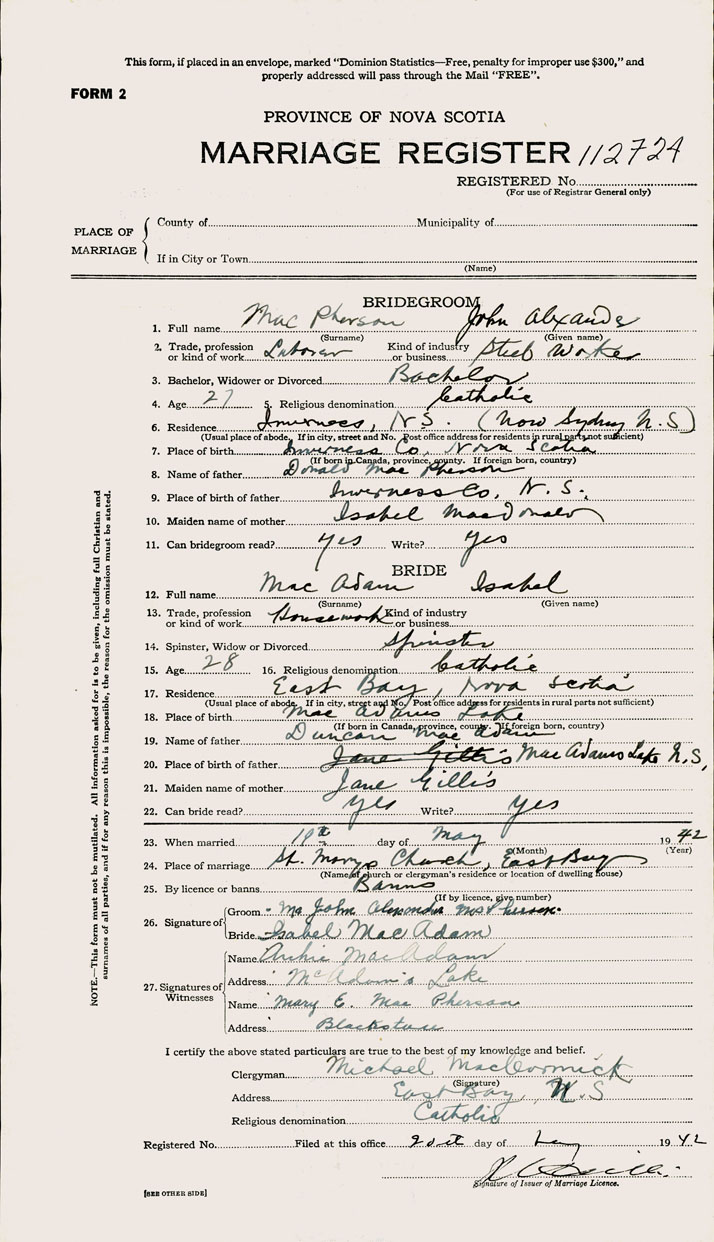 This form, if placed in an envelope, marked "Dominion Statistics—Free, penalty for improper use $300," and
properly addressed will pass through the Mail "FREE".
FORM 2
PROVINCE OF NOVA SCOTIA
MARRIAGE REGISTER 112724
REGISTERED No.
(For use of Registrar General only)
PLACE OF MARRIAGE
County of Municipality of
If in City or Town
(Name)
BRIDEGROOM
1. Full name Mac Pherson John Alexander
(Surname) (Given name)
2. Trade, profession or kind of work Laborer Kind of industry or business Steel Worker
3. Bachelor, Widower or Divorced Bachelor
4. Age 27 5. Religious denomination Catholic
6. Residence Inverness, N.S. (Now Sydney N.S)
(Usual place of abode. If in city, street and No. Post office address for residents in rural parts not sufficient)
7. Place of birth Inverness Co, Nova Scotia
(If born in Canada, province, county. If foreign born, country)
8. Name of father Donald Mac Pherson
9. Place of birth of father Inverness Co, N.S.
10. Maiden name of mother Isabel MacDonald
11. Can bridegroom read? Yes Write? Yes
BRIDE
12. Full name Mac Adam Isabel
(Surname) (Given name)
13. Trade, profession or kind of work Housework Kind of industry or business
14. Spinster, Widow or Divorced Spinster
15. Age 28 16. Religious denomination Catholic
17. Residence East Bay, Nova Scotia
(Usual place of abode. If in city, street and No. Post office address for residents in rural parts not sufficient)
18. Place of birth Mac Adams Lake
(If born in Canada, province, county. If foreign born, country)
19. Name of father Duncan Mac Adam
20. Place of birth of father Jane Gillis Mac Adams Lake N.S,
21. Maiden name of mother Jane Gillis
22. Can bride read? Yes Write? Yes
23. When married 19th day of May 1942
(Month) (Year)
24. Place of marriage St. Mary's Church, East Bay
(Name of church or clergyman's residence or location of dwelling house)
25. By licence or banns Banns
(If by licence, give number)
26. Signature of
Groom Mr John Alexander MacPherson
Bride Isabel MacAdam
27. Signatures of Witnesses
Name Archie MacAdam
Address McAdam's Lake
Name Mary E. Mac Pherson
Address
I certify the above stated particulars are true to the best of my knowledge and belief.
Clergyman Michael MacCormick
(Signature)
Address East Bay, N.S
Religious denomination Catholic
Registered No. Filed at this office day of 1942
Signature of Issuer of Marriage Licence.
[SEE OTHER SIDE]
NOTE.—This form must not be mutilated. All information asked for is to be given, including full Christian and
surnames of all parties, and if for any reason this is impossible, the reason for the omission must be stated.